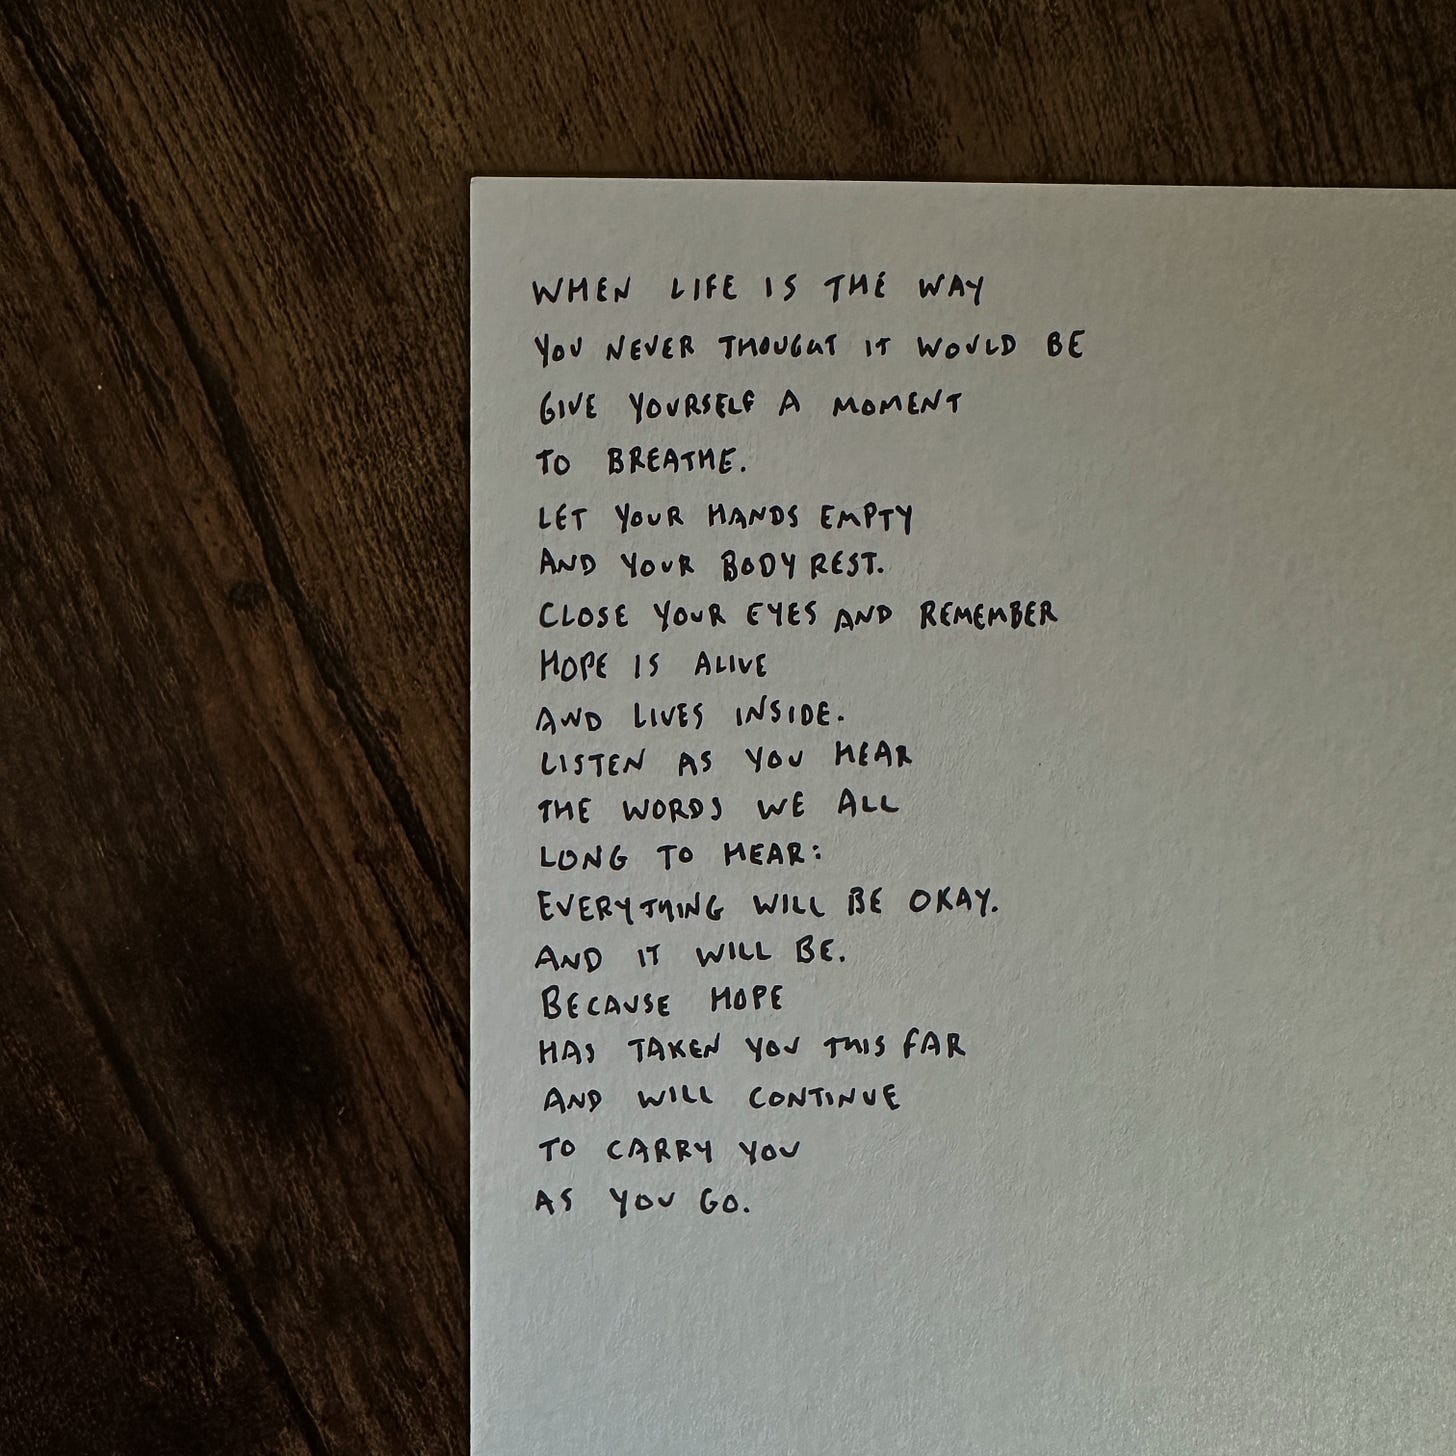 WHEN LIFE IS THE WAY
YOU NEVER THOUGHT IT WOULD BE
GIVE YOURSELF A MOMENT
TO BREATHE.
LET YOUR HANDS EMPTY
AND YOUR BODY REST.
CLOSE YOUR EYES AND REMEMBER
HOPE IS ALIVE
AND LIVES INSIDE.
LISTEN AS YOU HEAR
THE WORDS WE ALL
LONG TO HEAR:
EVERYTHING WILL BE OKAY.
AND IT WILL BE.
BECAUSE HOPE
HAS TAKEN YOU THIS FAR
AND WILL CONTINUE
TO CARRY YOU
AS YOU GO.